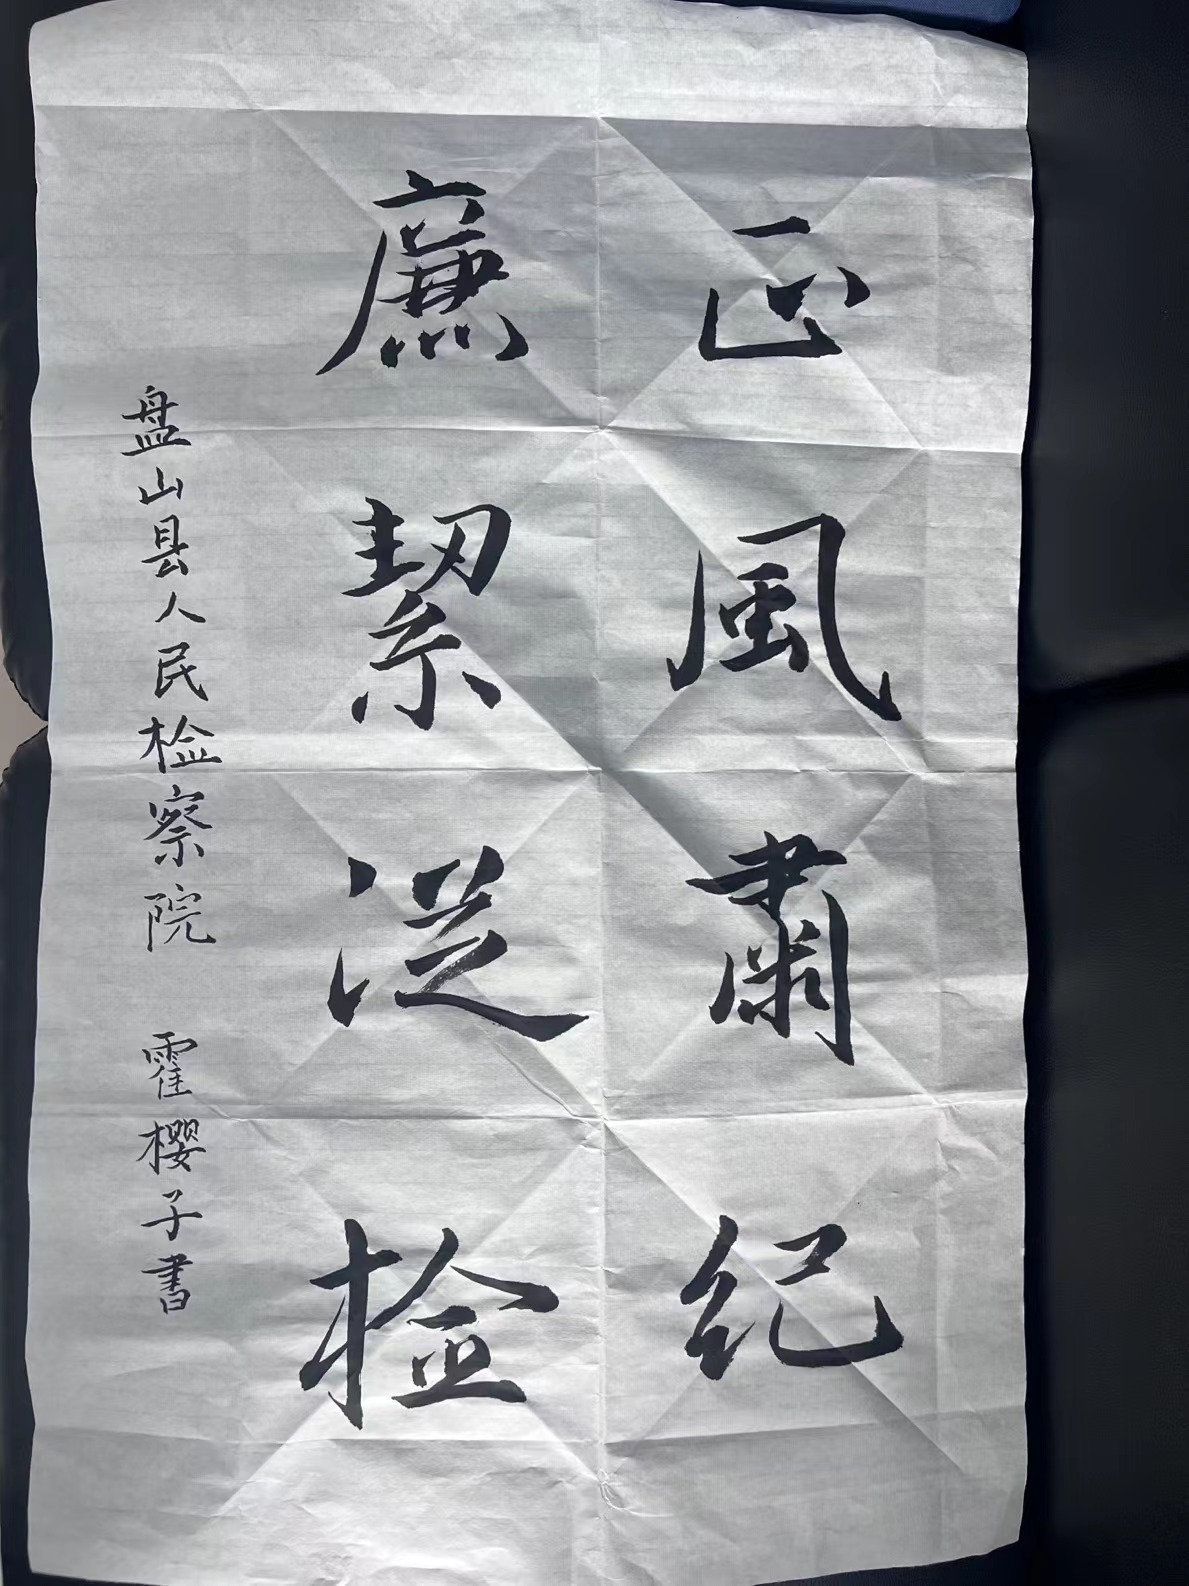 正風肅纪
廉絜從检
盘山县人民检察院 霍櫻子書